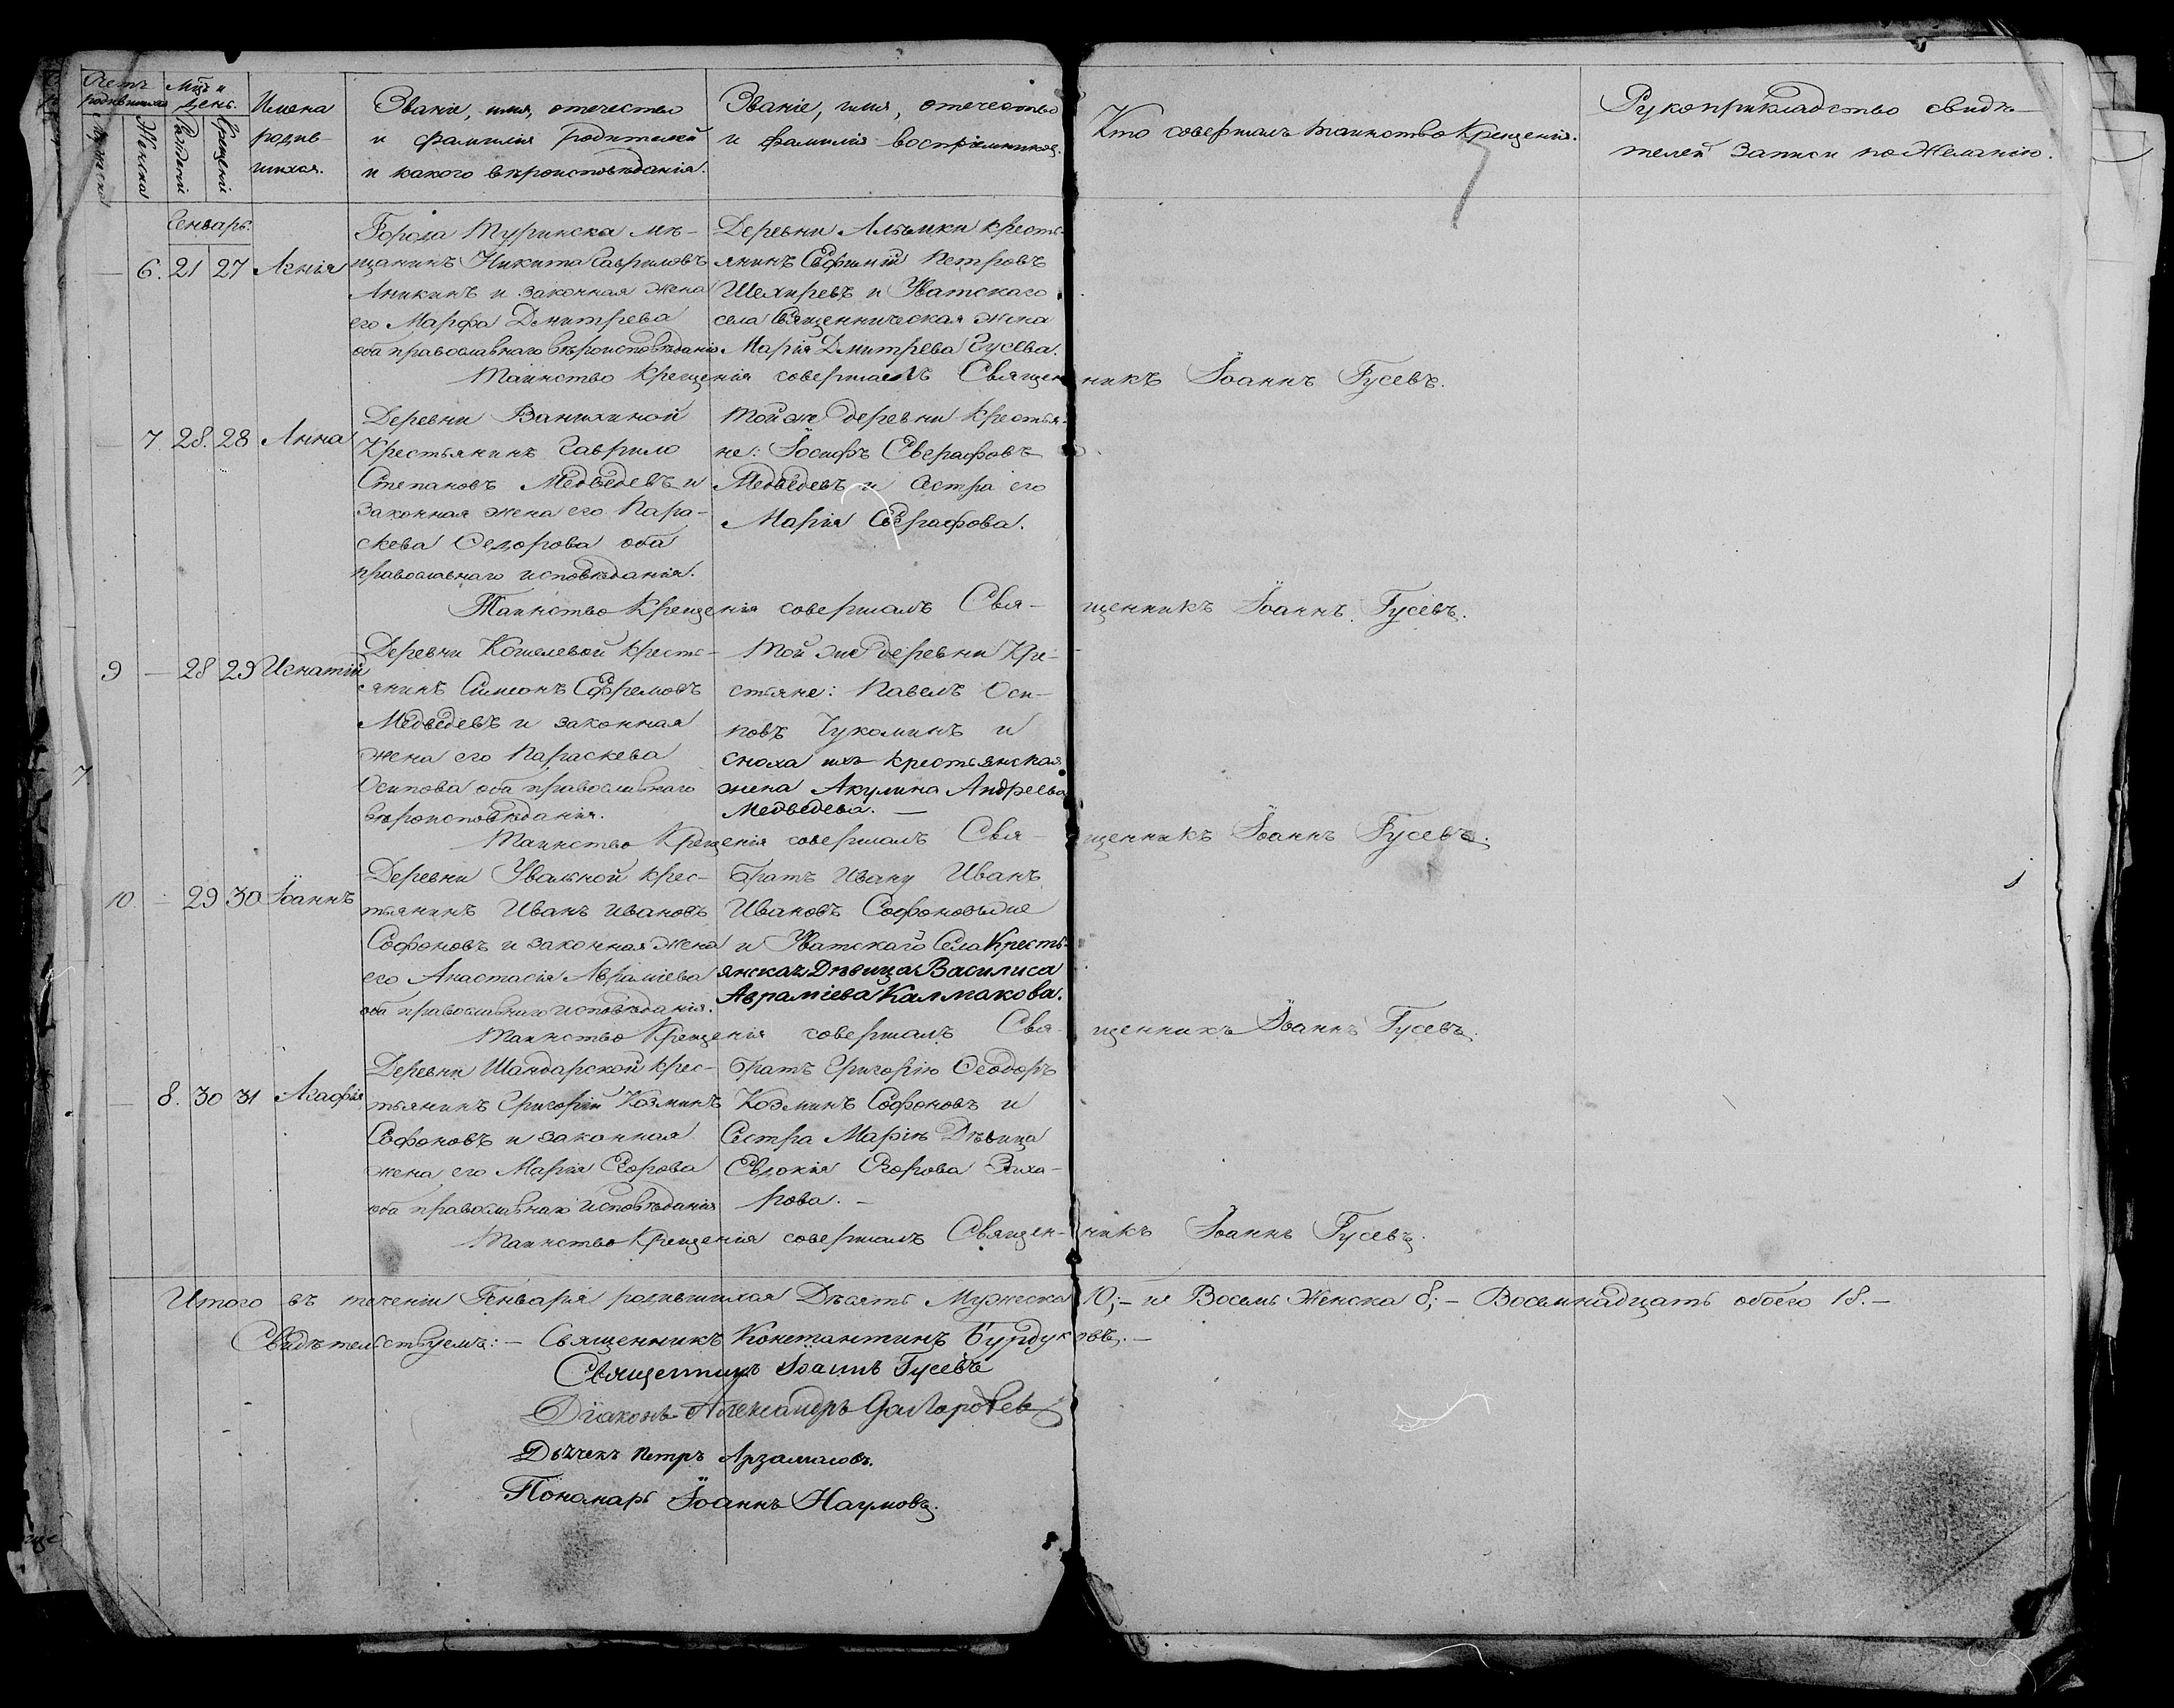 Счетъ родившихся
Мужеска
Женска
Мцъ и день.
Рожденій
Крещеній
Имена
родив-
шихся.
Званіе, имя, отечество
и фамилія родителей
и какого вѣроисповѣданія.
Званіе, имя, отечество
и фамилія воспріемниковъ.
Кто совершалъ таинство Крещенія.
Рукоприкладство свидѣ-
телей записи по желанію.
7
Генварь.
— 6. 21 27 Агнія
Города Туринска мѣ-
щанинъ Никита Гавриловъ
Аникинъ и законная жена
его Марфа Дмитрева
оба православнаго вѣроисповѣданія
Деревни Алымки кресть-
янинъ Евфимій Петровъ
Шехиревъ и Уватскаго
села Священническая жена
Марія Дмитрева Гусева.
Таинство крещенія совершалъ Священникъ Іоаннъ Гусевъ.
— 7 28. 28 Анна
Деревни Ванихиной
Крестьянинъ Гаврило
Степановъ Медвѣдевъ и
законная жена его Пара-
скева Ѳедорова оба
православнаго исповѣданія.
Той же деревни крестья-
не: Іосифъ Еверафовъ
Медвѣдевъ и сестра его
Марія Евграфова.
Таинство крещенія совершалъ Свя- щенникъ Іоаннъ Гусевъ.
9 — 28 29 Игнатій
Деревни Кошелевой кресть-
янинъ Симеонъ Ефремовъ
Медвѣдевъ и законная
жена его Параскева
Осипова оба православнаго
вѣроисповѣданія.
Той же деревни Кре-
стьяне: Павелъ Оси-
повъ Чукоминъ и
сноха ихъ крестьянская
жена Акулина Андреева
Медведева. —
Таинство Крещенія совершалъ Свя- щенникъ Іоаннъ Гусевъ.
10 — 29 30 Іоаннъ
Деревни Увальной крес-
тьянинъ Иванъ Ивановъ
Софоновъ и законная жена
его Анастасія Авраміева
оба православнаго исповѣданія.
Братъ Ивану Иванъ
Ивановъ Софоновъ же
и Уватскаго Села Кресть-
янская Дѣвица Василиса
Авраміева Калмакова.
Таинство Крещенія совершалъ Свя- щенникъ Іоаннъ Гусевъ.
— 8. 30 31 Агафія
Деревни Шандарской крес-
тьянинъ Григорій Козминъ
Софоновъ и законная
жена его Марія Егорова
оба православнаго исповѣданія
Братъ Григорію Ѳеодоръ
Козминъ Софоновъ и
Сестра Маріи Дѣвица
Евдокія Егорова Заха-
рова. —
Таинство Крещенія совершалъ Священ- никъ Іоаннъ Гусевъ.
Итого въ теченіи Генваря родившихся Десять Мужеска 10; — и Восемь Женска 8; — Восемнадцать обоего 18. —
Свидѣтельствуемъ: — Священникъ Константинъ Бурдуковъ. —
Священникъ Іоаннъ Гусевъ
Діаконъ Александръ
Дьячекъ Петръ Арзамасовъ.
Пономарь Іоаннъ Наумовъ.